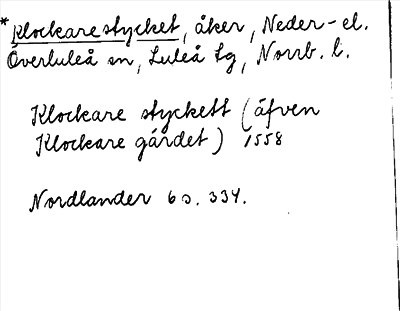 *Klockarestycket, åker, Neder- el.
Överluleå sn, Luleå tg, Norrb. l.
Klockare styckett (äfven
Klockare gärdet) 1558
Nordlander 6 s. 334.